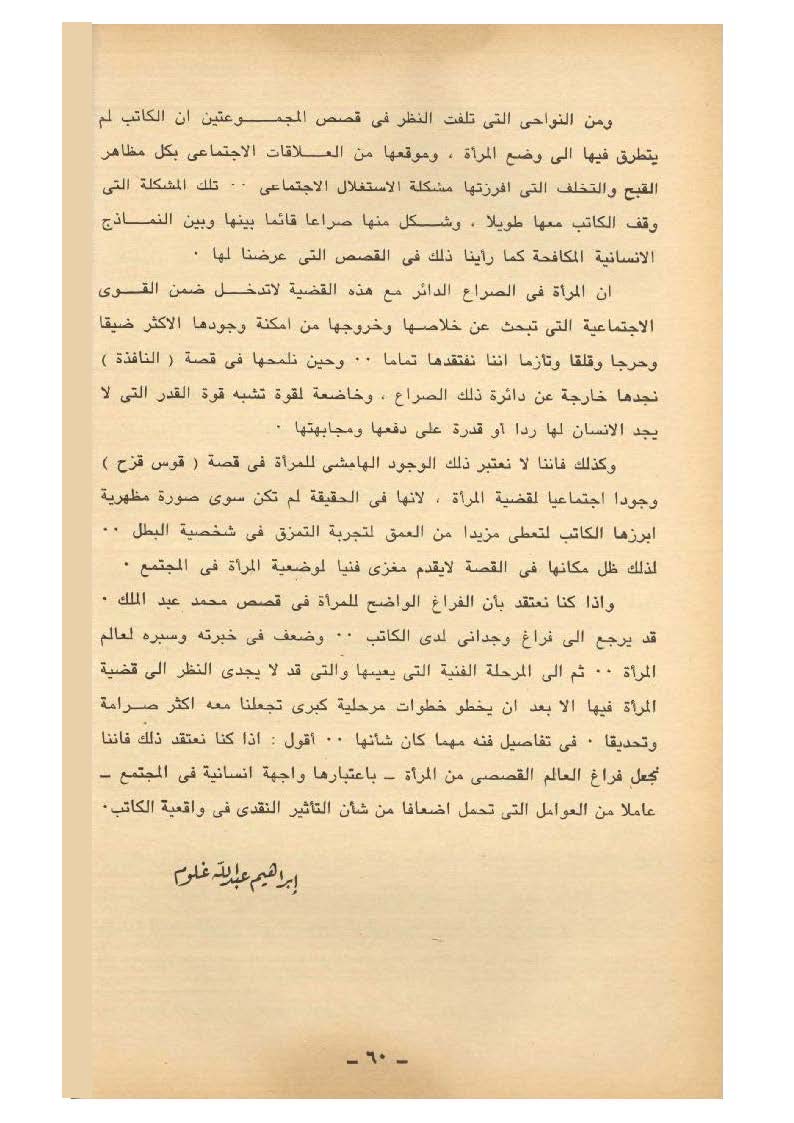 ومن النواحى التى تلفت النظر فى قصص المجمـــوعتين ان الكاتب لم
يتطرق فيها الى وضع المرأة ، وموقعها من العـــلاقات الاجتماعى بكل مظاهر
القبح والتخلف التى افرزتها مشكلة الاستغلال الاجتماعى ٠٠ تلك المشكلة التى
وقف الكاتب معها طويلا ، وشـــكل منها صراعا قائما بينها وبين النمـــاذج
الانسانية المكافحة كما رأينا ذلك فى القصص التى عرضنا لها ٠
ان المرأة فى الصراع الدائر مع هذه القضية لاتدخـــل ضمن القـــوى
الاجتماعية التى تبحث عن خلاصـها وخروجها من امكنة وجودها الاكثر ضيقا
وحرجا وقلقا وتأزما اننا نفتقدها تماما ٠٠ وحين نلمحها فى قصة ( النافذة )
نجدها خارجة عن دائرة ذلك الصراع ، وخاضعة لقوة تشبه قوة القدر التى لا
يجد الانسان لها ردا أو قدرة على دفعها ومجابهتها ٠
وكذلك فاننا لا نعتبر ذلك الوجود الهامشي للمرأة فى قصة ( قوس قزح )
وجودا اجتماعيا لقضية المرأة ، لانها فى الحقيقة لم تكن سوى صورة مظهرية
ابرزها الكاتب لتعطى مزيدا من العمق لتجربة التمزق فى شخصية البطل ٠٠
لذلك ظل مكانها فى القصة لايقدم مغزى فنيا لوضعية المرأة فى المجتمع ٠
واذا كنا نعتقد بأن الفراغ الواضح للمرأة فى قصص محمد عبد الملك ٠
قد يرجع الى فراغ وجدانى لدى الكاتب ٠٠ وضعف فى خبرته وسبره لعالم
المرأة ٠٠ ثم الى المرحلة الفنية التى يعيىها والتى قد لا يجدى النظر الى قضية
المرأة فيها الا بعد ان يخطو خطوات مرحلية كبرى تجعلنا معه اكثر صـــرامة
وتحديقا ٠ فى تفاصيل فنه مهما كان شأنها ٠٠ أقول : اذا كنا نعتقد ذلك فاننا
نجعل فراغ العالم القصصى من المرأة ــ باعتبارها واجهة انسانية فى المجتمع ــ
عاملا من العوامل التى تحمل اضعافا من شأن التأثير النقدى فى واقعية الكاتب٠
إبراهيم عبدالله غلوم
ــ ٦٠ ــ